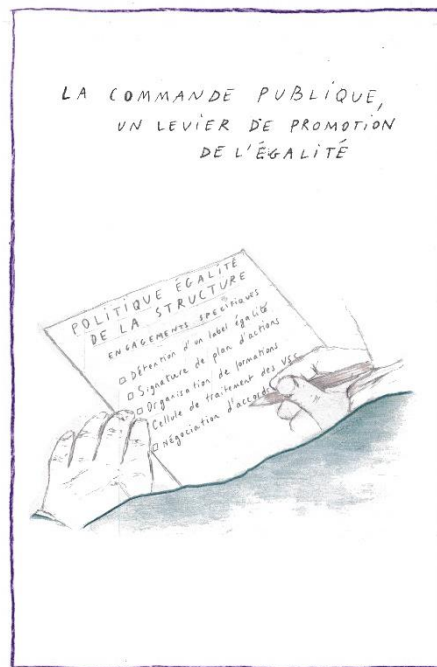 LA COMMANDE PUBLIQUE,
UN LEVIER DE PROMOTION
DE L'ÉGALITÉ
POLITIQUE ÉGALITÉ
DE LA STRUCTURE
ENGAGEMENTS SPÉCIFIQUES
□ Détention d'un label égalité
□ Signature de plan d'actions
□ Organisation de formations
□ Cellule de traitement des VSS
□ Négociation d'accords